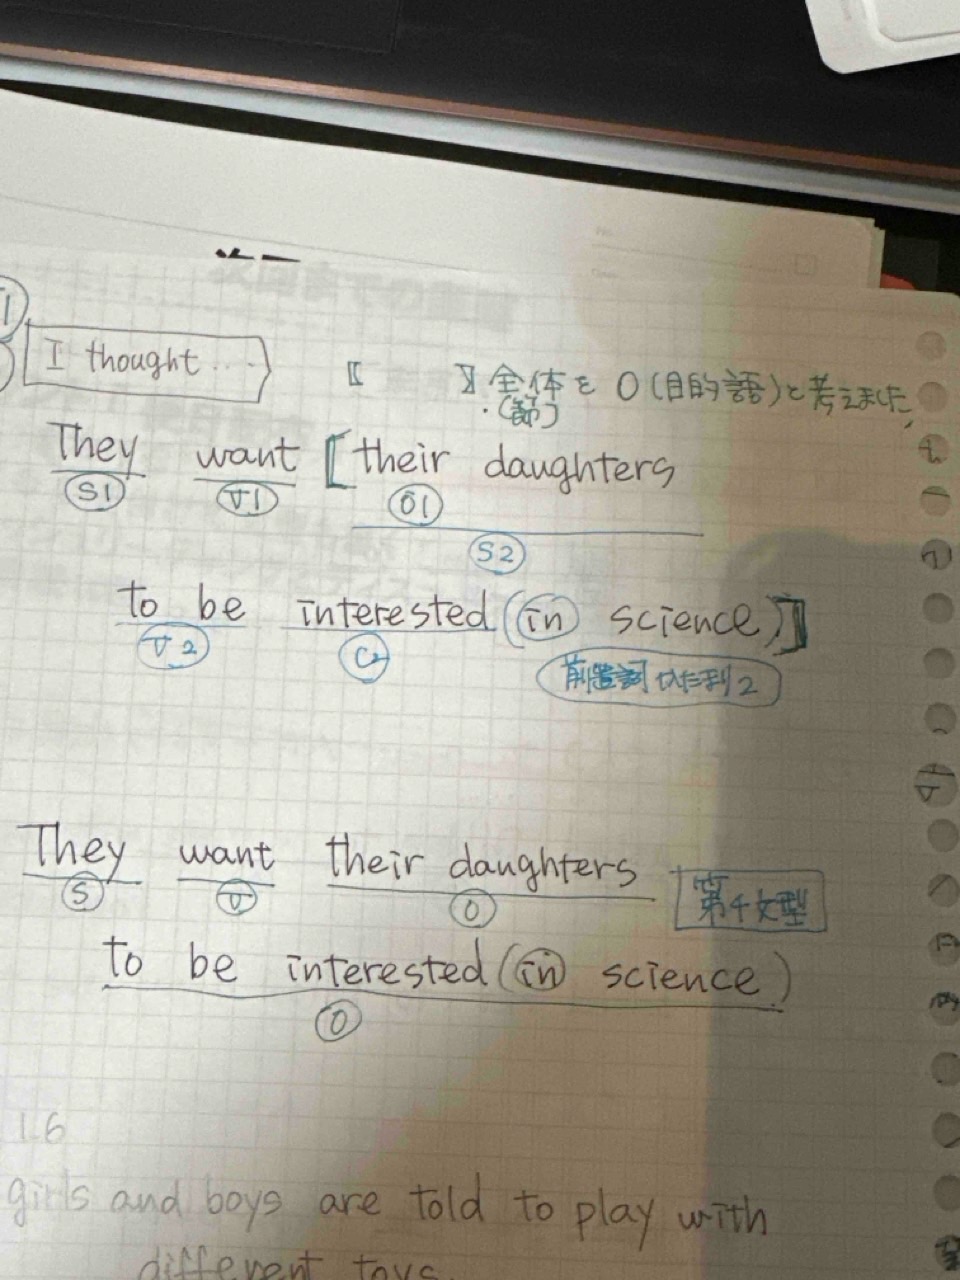 I thought...
〖 〗全体を O(目的語)と考えました
(節)
They want [their daughters
S1 V1 O1
S2
to be interested (in science)]
V2 C2
前置詞 2
They want their daughters
S V O 第4文型
to be interested (in science)
O
1.6
girls and boys are told to play with
different toys.